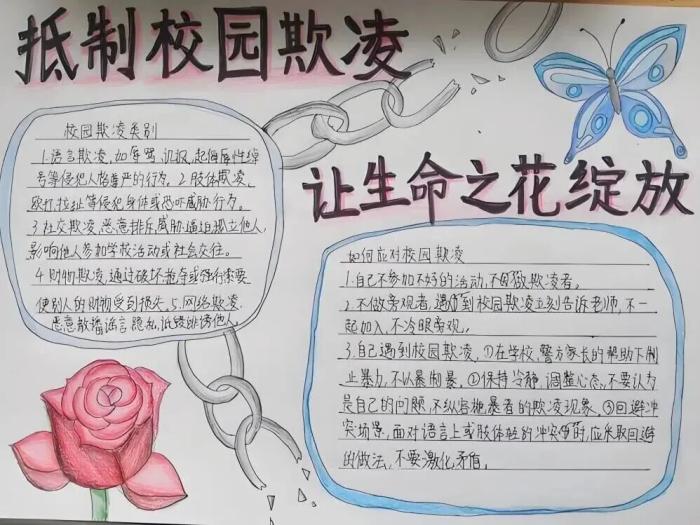 抵制校园欺凌
让生命之花绽放
校园欺凌类别
1.语言欺凌,如辱骂、讥讽,起侮辱性绰
号等侵犯人格尊严的行为. 2.肢体欺凌,
殴打,拉扯等侵犯身体或恐吓威胁行为.
3.社交欺凌,恶意排斥,威胁逼迫孤立他人,
影响他人参加学校活动或社会交往.
4.财物欺凌,通过破坏抢夺或强行索要
使别人的财物受到损失. 5.网络欺凌
恶意散播谣言隐私,诋毁诽谤他人.
如何应对校园欺凌
1.自己不参加不好的活动,不做欺凌者。
2.不做旁观者,遇到校园欺凌立刻告诉老师,不一
起加入,不冷眼旁观。
3.自己遇到校园欺凌,①在学校,警方家长的帮助下制
止暴力,不以暴制暴。①保持冷静,调整心态,不要认为
是自己的问题,不纵容施暴者的欺凌现象。③回避冲
突场景,面对语言上或肢体轻的冲突时,应采取回避
的做法,不要激化矛盾。